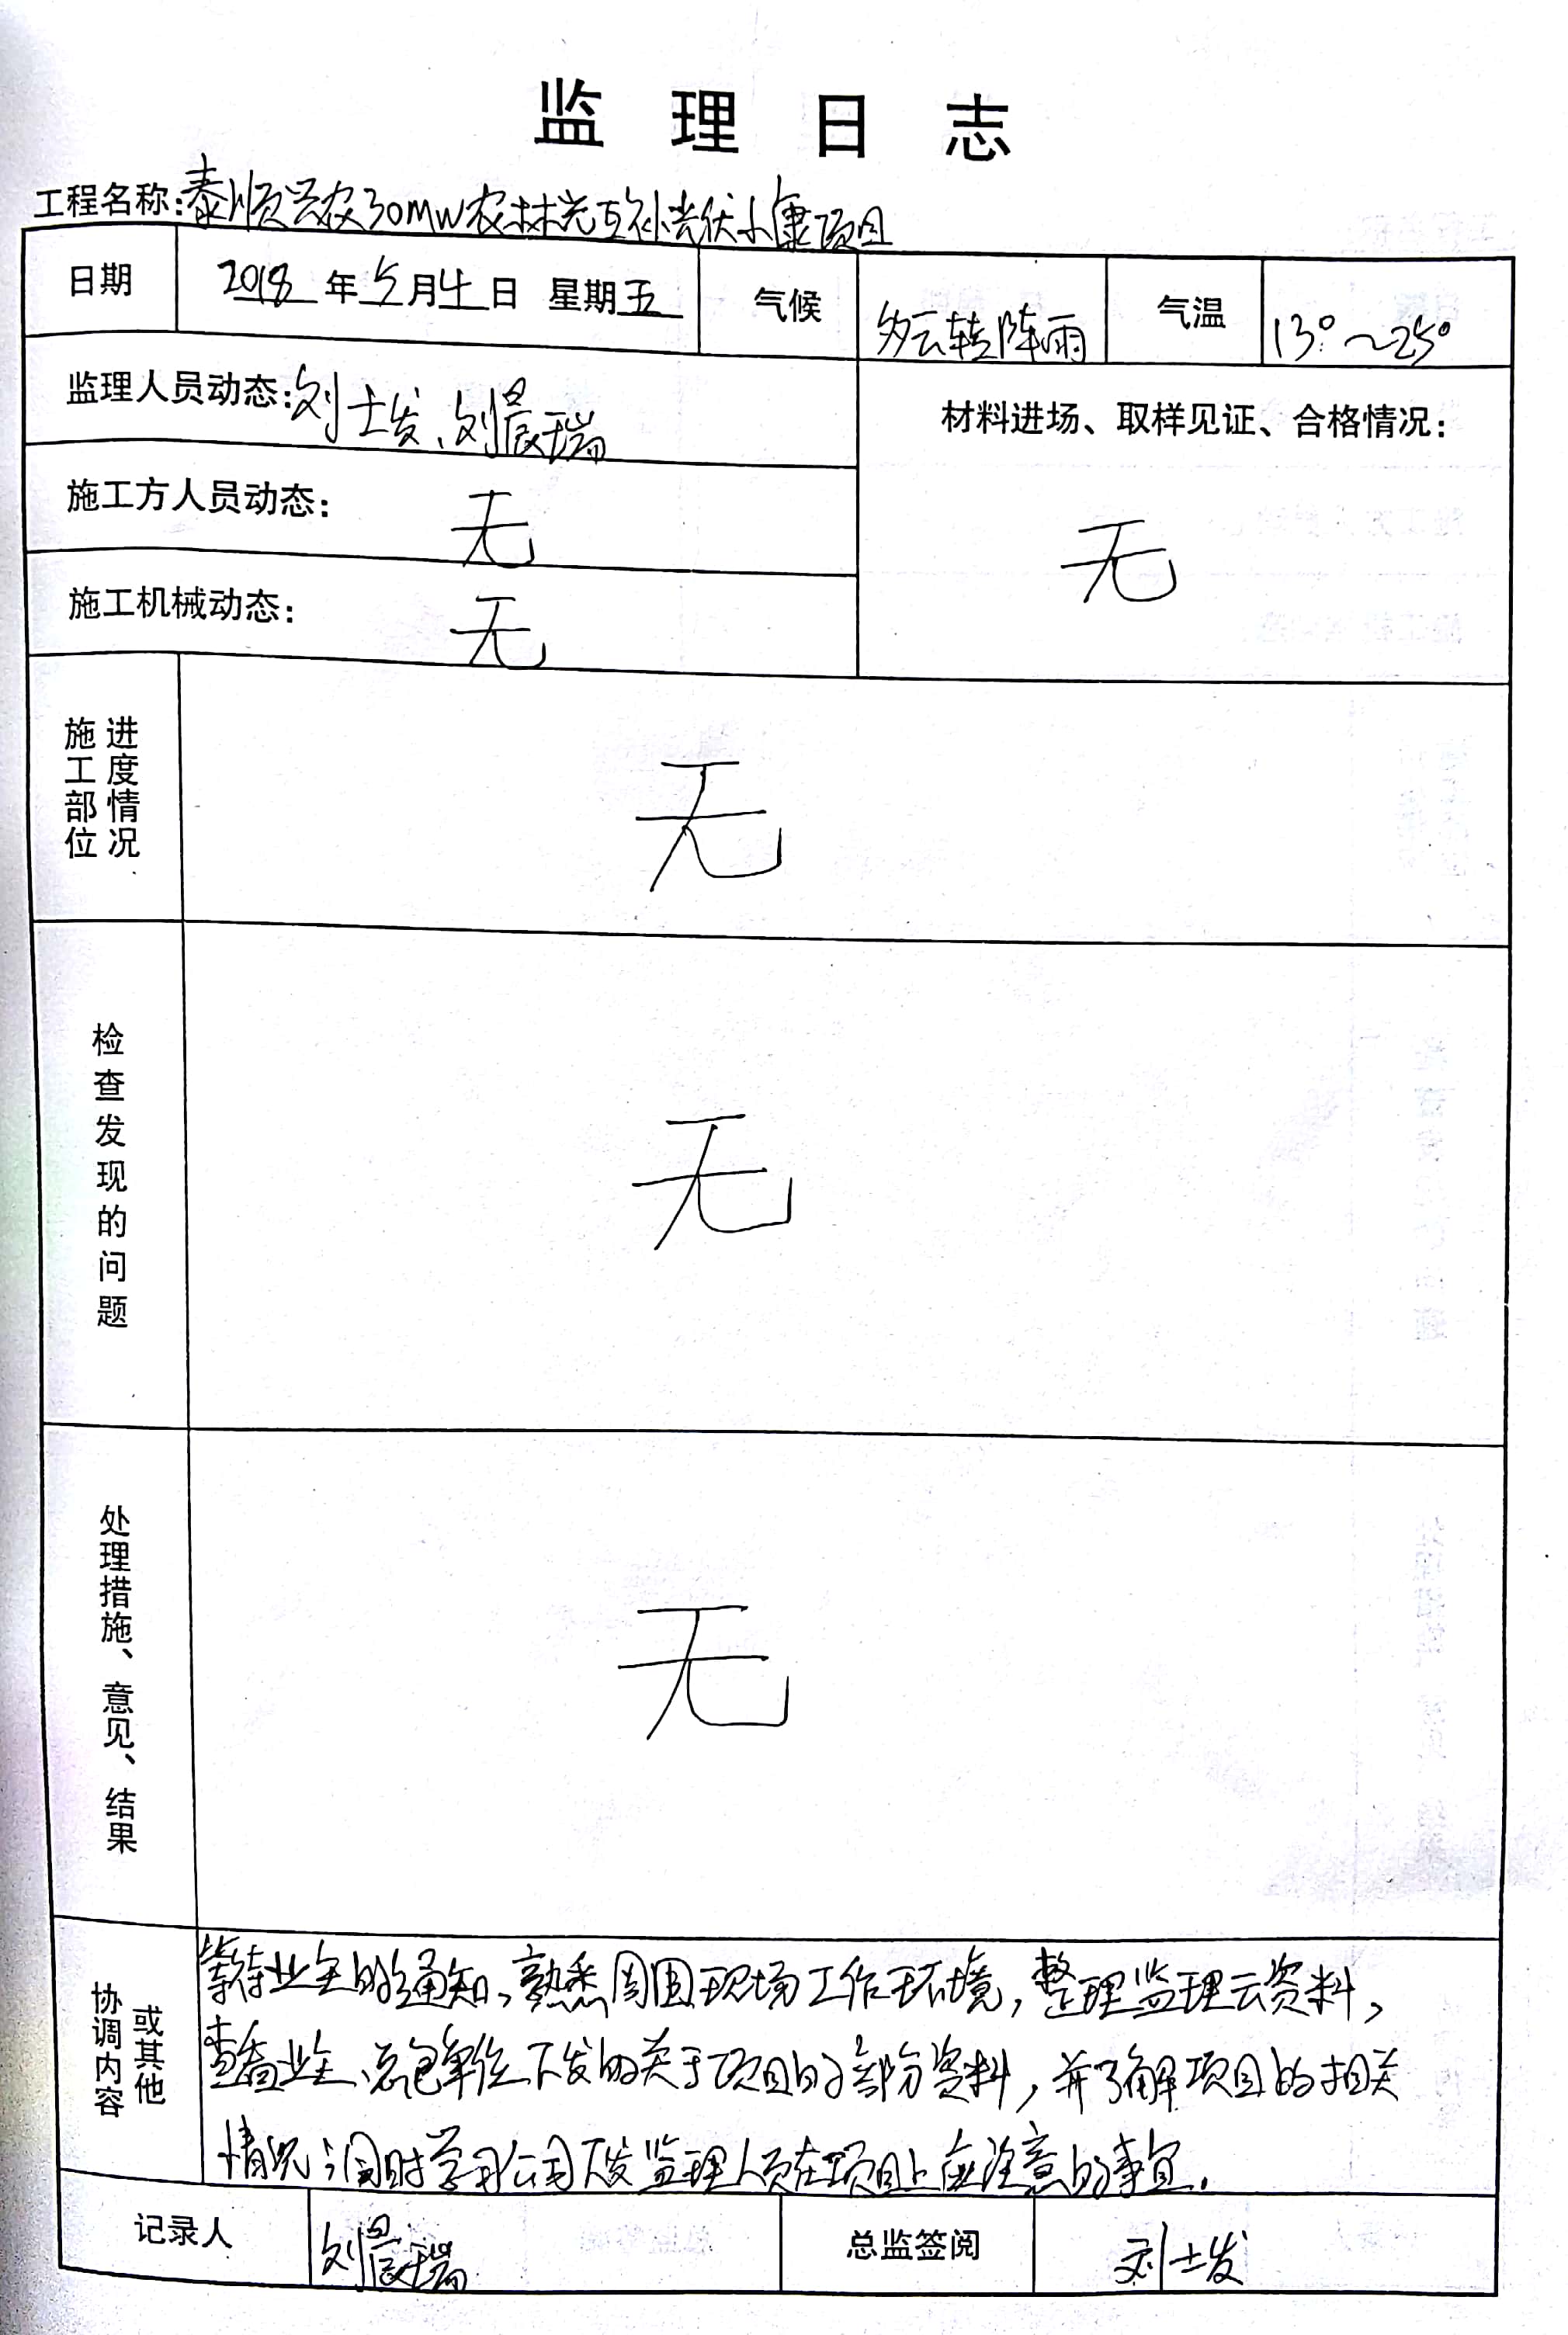 监理日志
工程名称:泰顺兴农30MW农林光互补光伏小康项目
日期 2018年5月4日 星期五 气候 多云转阵雨 气温 13°~25°
监理人员动态:刘士发、刘晨瑞
材料进场、取样见证、合格情况:
无
施工方人员动态: 无
施工机械动态: 无
施工部位
进度情况
无
检查发现的问题
无
处理措施、意见、结果
无
协调内容
或其他
等待业主的通知,熟悉周围现场工作环境,整理监理云资料,
查看业主、总包单位下发的关于项目的部分资料,并了解项目的相关
情况;同时学习公司下发监理人员在项目上应注意的事宜.
记录人 刘晨瑞 总监签阅 刘士发